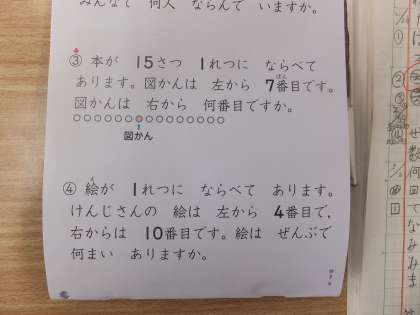 みんなで 何人 ならんで いますか。
③ 本が 15さつ 1れつに ならべて
あります。図かんは 左から 7番目です。
図かんは 右から 何番目ですか。
図かん
④ 絵が 1れつに ならべて あります。
けんじさんの 絵は 左から 4番目で、
右からは 10番目です。絵は ぜんぶで
何まい ありますか。